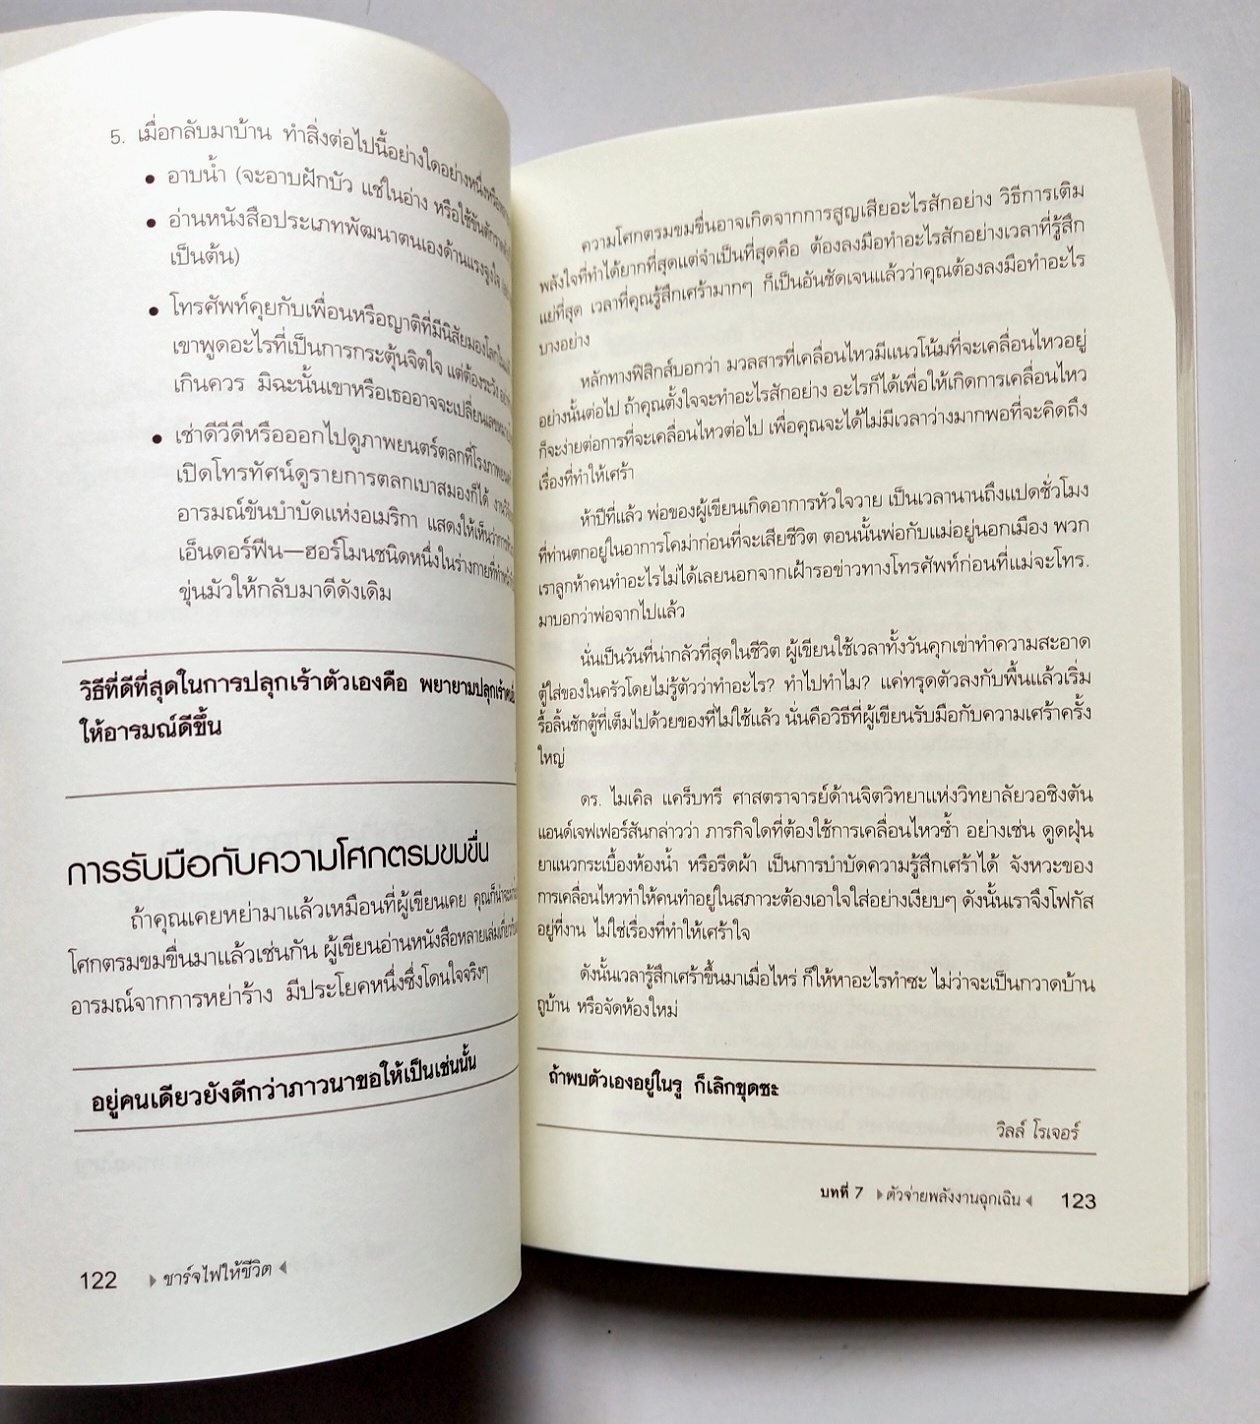 5. เมื่อกลับมาบ้าน ทำสิ่งต่อไปนี้อย่างใดอย่างหนึ่งหรือ
• อาบน้ำ (จะอาบฝักบัว แช่ในอ่าง หรือใช้ขันตัก
• อ่านหนังสือประเภทพัฒนาตนเองด้านแรงจูงใจ
เป็นต้น)
• โทรศัพท์คุยกับเพื่อนหรือญาติที่มีนิสัยมองโลกใน
เขาพูดอะไรที่เป็นการกระตุ้นจิตใจ แต่ต้องระวัง
เกินควร มิฉะนั้นเขาหรือเธออาจจะเปลี่ยน
• เช่าดีวีดีหรือออกไปดูภาพยนตร์ตลกที่โรงภาพยนตร์
เปิดโทรทัศน์ดูรายการตลกเบาสมองก็ได้
อารมณ์ขันบำบัดแห่งอเมริกา แสดงให้เห็นว่าการ
เอ็นดอร์ฟีน—ฮอร์โมนชนิดหนึ่งในร่างกายที่
ขุ่นมัวให้กลับมาดีดังเดิม
วิธีที่ดีที่สุดในการปลุกเร้าตัวเองคือ พยายามปลุกเร้า
ให้อารมณ์ดีขึ้น
การรับมือกับความโศกตรมขมขื่น
ถ้าคุณเคยหย่ามาแล้วเหมือนที่ผู้เขียนเคย
โศกตรมขมขื่นมาแล้วเช่นกัน ผู้เขียนอ่านหนังสือหลายเล่ม
อารมณ์จากการหย่าร้าง มีประโยคหนึ่งซึ่งโดนใจจริงๆ
อยู่คนเดียวยังดีกว่าภาวนาขอให้เป็นเช่นนั้น
122 ชาร์จไฟให้ชีวิต
ความโศกตรมขมขื่นอาจเกิดจากการสูญเสียอะไรสักอย่าง วิธีการเติม
พลังใจที่ทำได้ยากที่สุดแต่จำเป็นที่สุดคือ ต้องลงมือทำอะไรสักอย่างเวลาที่รู้สึก
แย่ที่สุด เวลาที่คุณรู้สึกเศร้ามากๆ ก็เป็นอันชัดเจนแล้วว่าคุณต้องลงมือทำอะไร
บางอย่าง
หลักทางฟิสิกส์บอกว่า มวลสารที่เคลื่อนไหวมีแนวโน้มที่จะเคลื่อนไหวอยู่
อย่างนั้นต่อไป ถ้าคุณตั้งใจจะทำอะไรสักอย่าง อะไรก็ได้เพื่อให้เกิดการเคลื่อนไหว
ก็จะง่ายต่อการที่จะเคลื่อนไหวต่อไป เพื่อคุณจะได้ไม่มีเวลาว่างมากพอที่จะคิดถึง
เรื่องที่ทำให้เศร้า
ห้าปีที่แล้ว พ่อของผู้เขียนเกิดอาการหัวใจวาย เป็นเวลานานถึงแปดชั่วโมง
ที่ท่านตกอยู่ในอาการโคม่าก่อนที่จะเสียชีวิต ตอนนั้นพ่อกับแม่อยู่นอกเมือง พวก
เราลูกห้าคนทำอะไรไม่ได้เลยนอกจากเฝ้ารอข่าวทางโทรศัพท์ก่อนที่แม่จะโทร.
มาบอกว่าพ่อจากไปแล้ว
นั่นเป็นวันที่น่ากลัวที่สุดในชีวิต ผู้เขียนใช้เวลาทั้งวันคุกเข่าทำความสะอาด
ตู้ใส่ของในครัวโดยไม่รู้ตัวว่าทำอะไร? ทำไปทำไม? แค่ทรุดตัวลงกับพื้นแล้วเริ่ม
รื้อลิ้นชักตู้ที่เต็มไปด้วยของที่ไม่ใช้แล้ว นั่นคือวิธีที่ผู้เขียนรับมือกับความเศร้าครั้ง
ใหญ่
ดร. ไมเคิล แคร็บทรี ศาสตราจารย์ด้านจิตวิทยาแห่งวิทยาลัยวอชิงตัน
แอนด์เจฟเฟอร์สันกล่าวว่า ภารกิจใดที่ต้องใช้การเคลื่อนไหวซ้ำ อย่างเช่น ดูดฝุ่น
ยาแนวกระเบื้องห้องน้ำ หรือรีดผ้า เป็นการบำบัดความรู้สึกเศร้าได้ จังหวะของ
การเคลื่อนไหวทำให้คนทำอยู่ในสภาวะต้องเอาใจใส่อย่างเงียบๆ ดังนั้นเราจึงโฟกัส
อยู่ที่งาน ไม่ใช่เรื่องที่ทำให้เศร้าใจ
ดังนั้นเวลารู้สึกเศร้าขึ้นมาเมื่อไหร่ ก็ให้หาอะไรทำซะ ไม่ว่าจะเป็นกวาดบ้าน
ถูบ้าน หรือจัดห้องใหม่
ถ้าพบตัวเองอยู่ในรู ก็เลิกขุดซะ
วิลล์ โรเจอร์
บทที่ 7 ตัวจ่ายพลังงานฉุกเฉิน 123